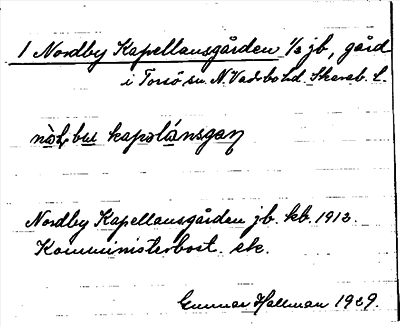 1 Nordby Kapellansgården 1/2 jb, gård
i Torsö sn. N. Vadsbo hd. Skarab. L.
kapəlánsgaṇ
Nordby Kapellansgården jb. kb. 1913.
Kommunisterbost. ek.
Gunnar Hallman 1929.